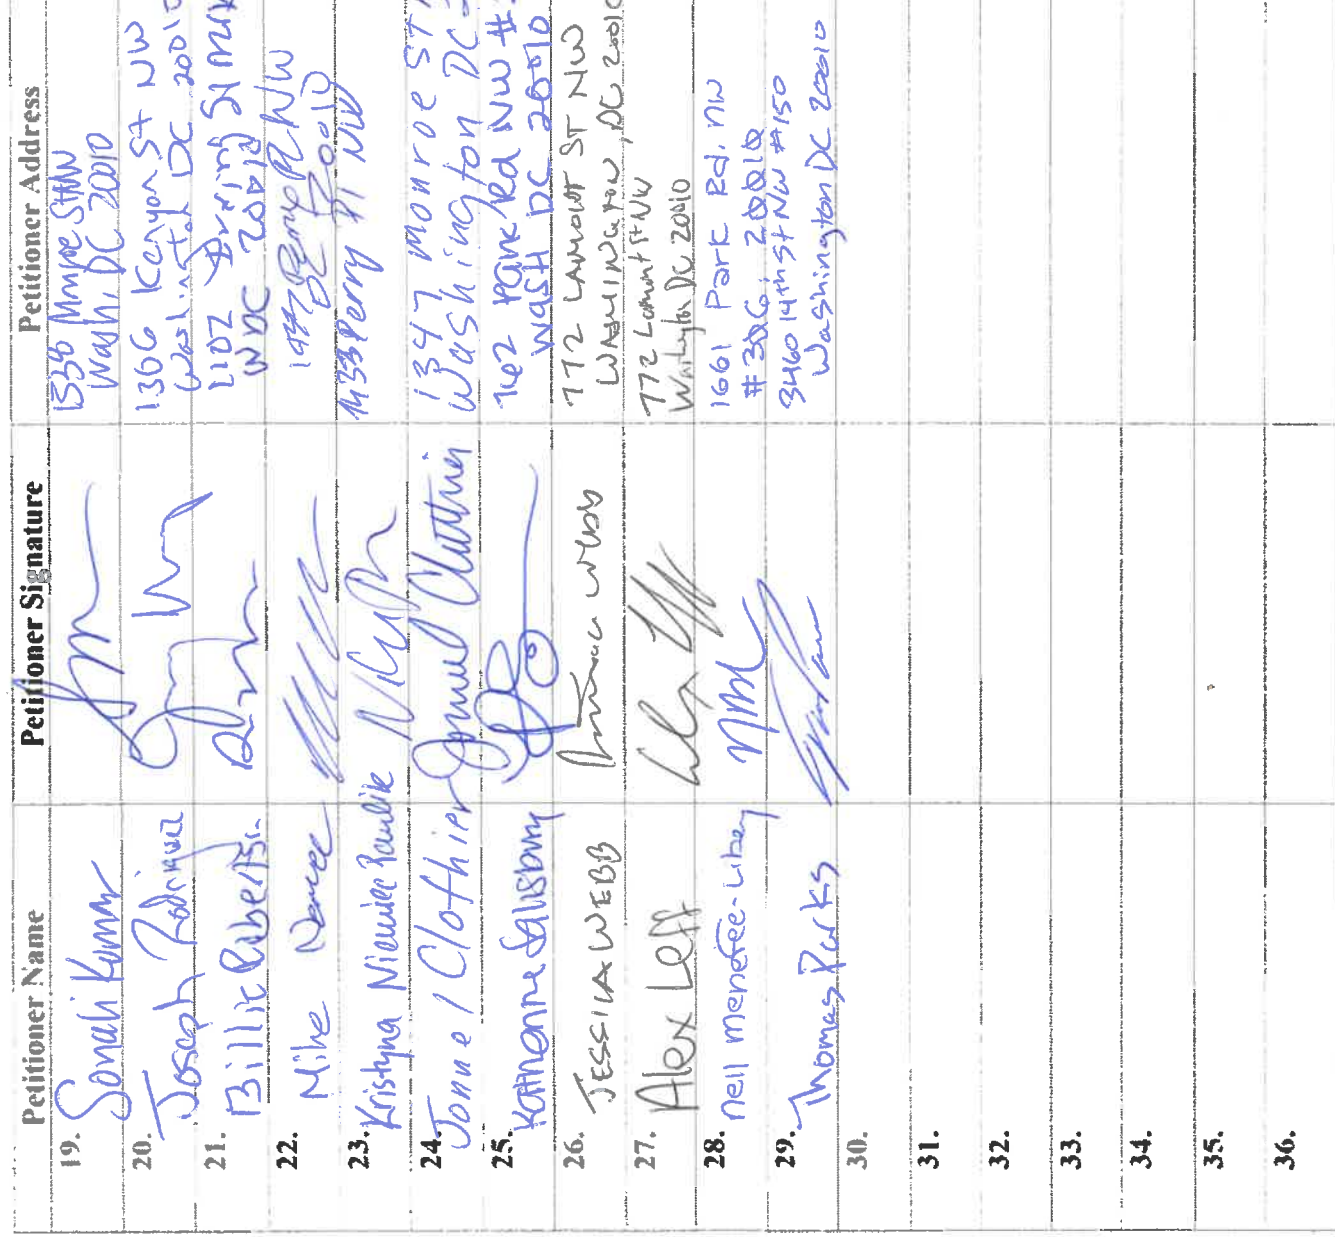 Petitioner Name Petitioner Signature Petitioner Address
19. Sonali Kumar 1350 Monroe St NW
Wash, DC 20010
20. Joseph Rodriguez 1306 Kenyon St NW
Washington DC 20010
21. Billie Roberts 1102 Irving St NW
W DC 20010
22. Mike Perry Pl NW
DC 20010
23. Kristyna Niewiec Paulik 1433 Perry Pl NW
24. Jonnel Clothier Jonnel Clothier 1347 Monroe St
Washington DC
25. Katherine Salisbury Park Rd NW #
Wash DC 20010
26. JESSICA WEBB Webb 772 LAMONT ST NW
WASHINGTON, DC 20010
27. Alex Leff 772 Lamont St NW
Washington DC 20010
28. nell menefee-libey 1661 Park Rd. NW
#306, 20010
29. Thomas Parks 3460 14th St NW #150
Washington DC 20010
30.
31.
32.
33.
34.
35.
36.